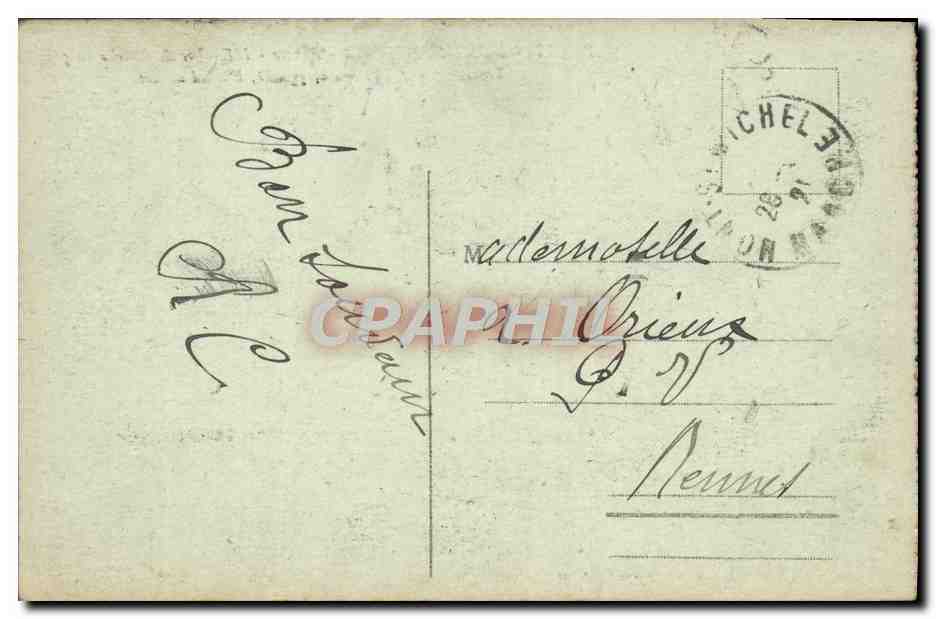 Bon Souvenir
A C
Mademoiselle
Orieux
P. V
Rennes
MONT-ST-MICHEL
MANCHE
28
21
CPAPHIL